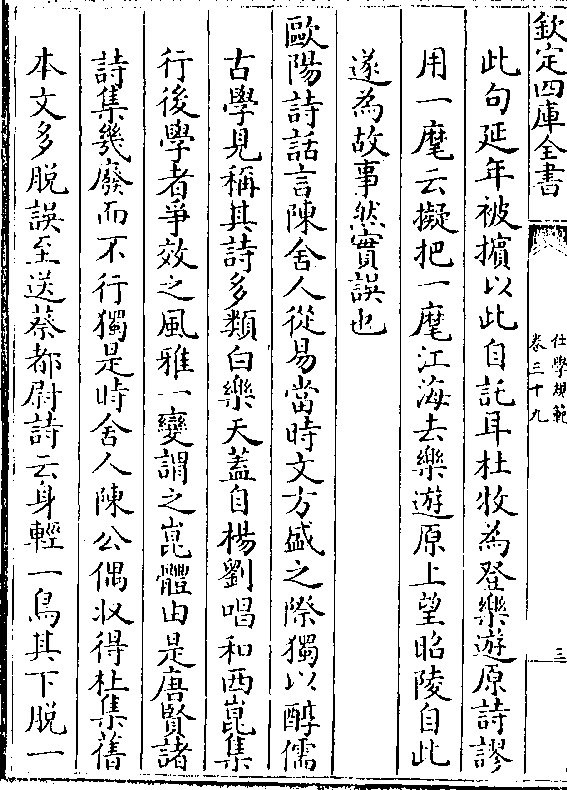 欽定四庫全書
仕學規範
卷三十九
三
此句延年被擯以此自託耳杜牧為登樂遊原詩謬
用一麾云擬把一麾江海去樂遊原上望昭陵自此
遂為故事然實誤也
歐陽詩話言陳舍人從易當時文方盛之際獨以醇儒
古學見稱其詩多類白樂天蓋自楊劉唱和西崑集
行後學者爭效之風雅一變謂之崑體由是唐賢諸
詩集幾廢而不行獨是時舍人陳公偶收得杜集舊
本文多脫誤至送蔡都尉詩云身輕一鳥其下脫一